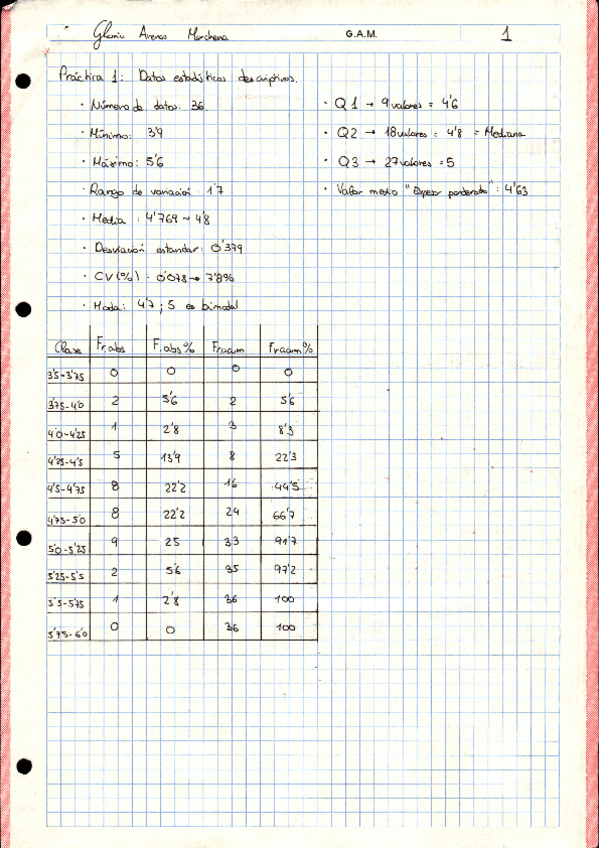 Gloria Arenas Marchena
G.A.M.
1
Práctica 1: Datos estadísticos descriptivos.
· Número de datos: 36
· Mínimo: 3'9
· Máximo: 5'6
· Rango de variación: 1'7
· Media: 4'769 ~ 4'8
· Desviación estandar: 0'379
· CV(%): 0'078 → 7'8%
· Moda: 4'7 ; 5 es bimodal
· Q1 → 9 valores = 4'6
· Q2 → 18 valores = 4'8 = Mediana
· Q3 → 27 valores = 5
· Valor medio "Espesor ponderado": 4'63
Clase Fr.abs F.abs% Fr.acum Fr.acum%
3'5-3'75 0 0 0 0
3'75-4'0 2 5'6 2 5'6
4'0-4'25 1 2'8 3 8'3
4'25-4'5 5 13'9 8 22'3
4'5-4'75 8 22'2 16 44'5
4'75-5'0 8 22'2 24 66'7
5'0-5'25 9 25 33 91'7
5'25-5'5 2 5'6 35 97'2
5'5-5'75 1 2'8 36 100
5'75-6'0 0 0 36 100